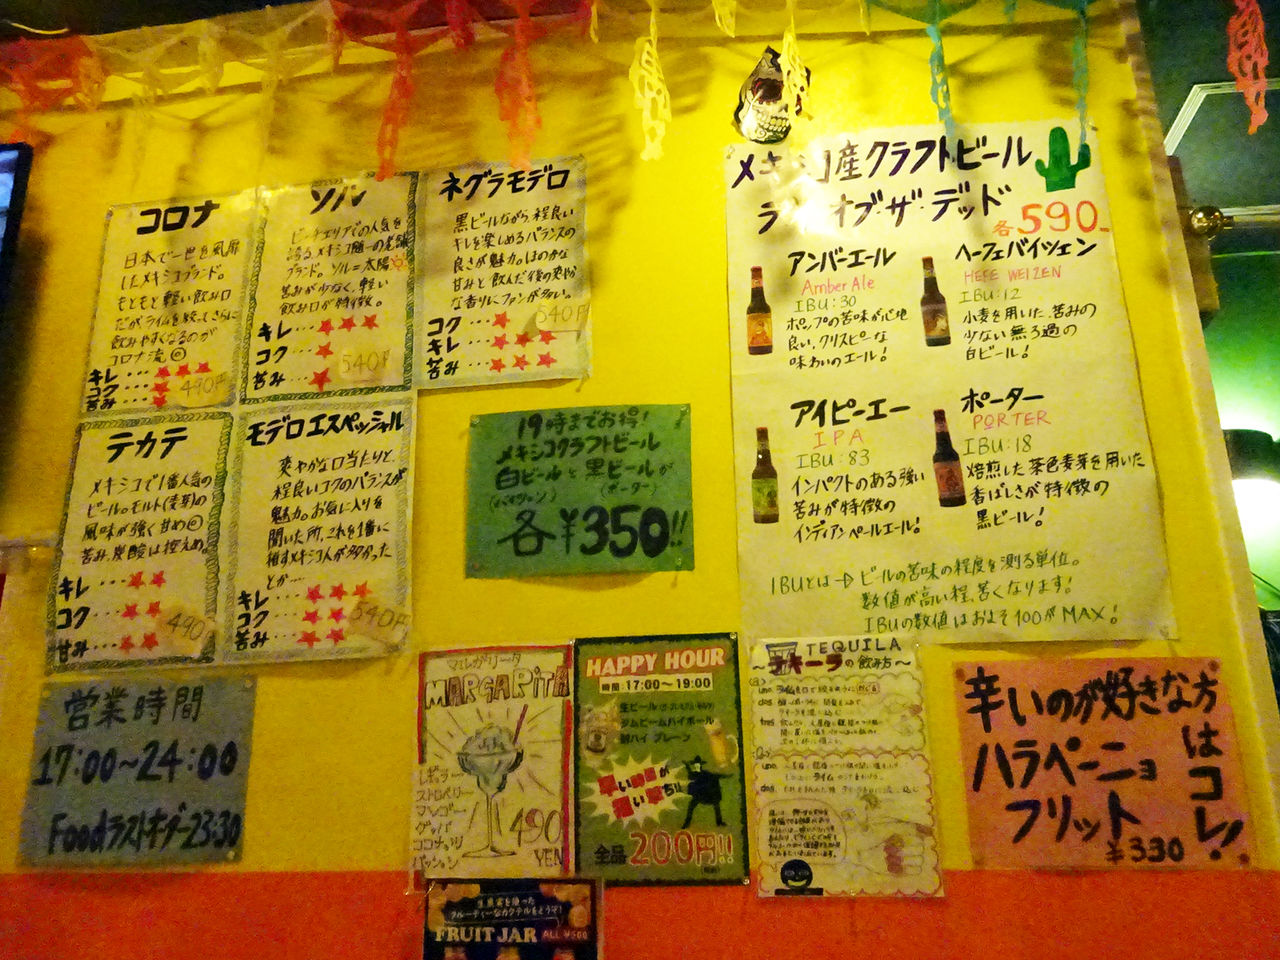 コロナ
日本で一世を風靡
したメキシコブランド。
もともと軽い飲み口
だがライムを絞ってさらに
飲みやすくなるのが
コロナ流
キレ…★★★
コク…★
苦み…★
490円
ソル
ビーチエリアでの人気を
誇るメキシコ随一の老舗
ブランド。ソル=太陽
苦みが少なく、軽い
飲み口が特徴。
キレ…★★★
コク…★
苦み…★
540円
ネグラモデロ
黒ビールながら、程良い
キレを楽しめるバランスの
良さが魅力。ほのかな
甘みと飲んだ後の爽やか
な香りにファンが多い。
コク…★★
キレ…★★★
苦み…★★★
540円
テカテ
メキシコで1番人気の
ビール。モルト(麦芽)の
風味が強く甘め
苦み、炭酸は控えめ。
キレ…★★
コク…★★
甘み…★★
490円
モデロ エスペッシャル
爽やかな口当たりと、
程良いコクのバランスが
魅力。お気に入りを
聞いた所、これを1番に
推すメキシコ人が多かった
とか…
キレ…★★★
コク…★★
苦み…★★
540円
19時までお得!
メキシコクラフトビール
白ビールと黒ビールが
(ポーター)
各¥350!!
メキシコ産クラフトビール
ラ・オブ・ザ・デッド
各590-
アンバーエール
Amber Ale
IBU:30
ホップの苦味が心地
良い、クリスピーな
味わいのエール!
ヘーフェバイツェン
HEFE WEIZEN
IBU:12
小麦を用いた、苦みの
少ない無ろ過の
白ビール!
アイピーエー
IPA
IBU:83
インパクトのある強い
苦みが特徴の
インディアンペールエール!
ポーター
PORTER
IBU:18
焙煎した茶色麦芽を用いた
香ばしさが特徴の
黒ビール!
IBUとは→ビールの苦味の程度を測る単位。
数値が高い程、苦くなります!
IBUの数値はおよそ100がMAX!
営業時間
17:00～24:00
Foodラストオーダー23:30
マルガリータ
MARGARITA
レギュラー
ストロベリー
マンゴー
グァバ
ココナッツ
パッション
490
YEN
HAPPY HOUR
時間 17:00～19:00
生ビール
ジムビームハイボール
酎ハイ プレーン
早い時間が
狙い撃ち!!
全品200円!!
TEQUILA
～テキーラの飲み方～
辛いのが好きな方
はコレ!!
ハラペーニョ
フリット
¥330
生果実を使った
フルーティーなカクテルをどうぞ!
FRUIT JAR ALL ¥500